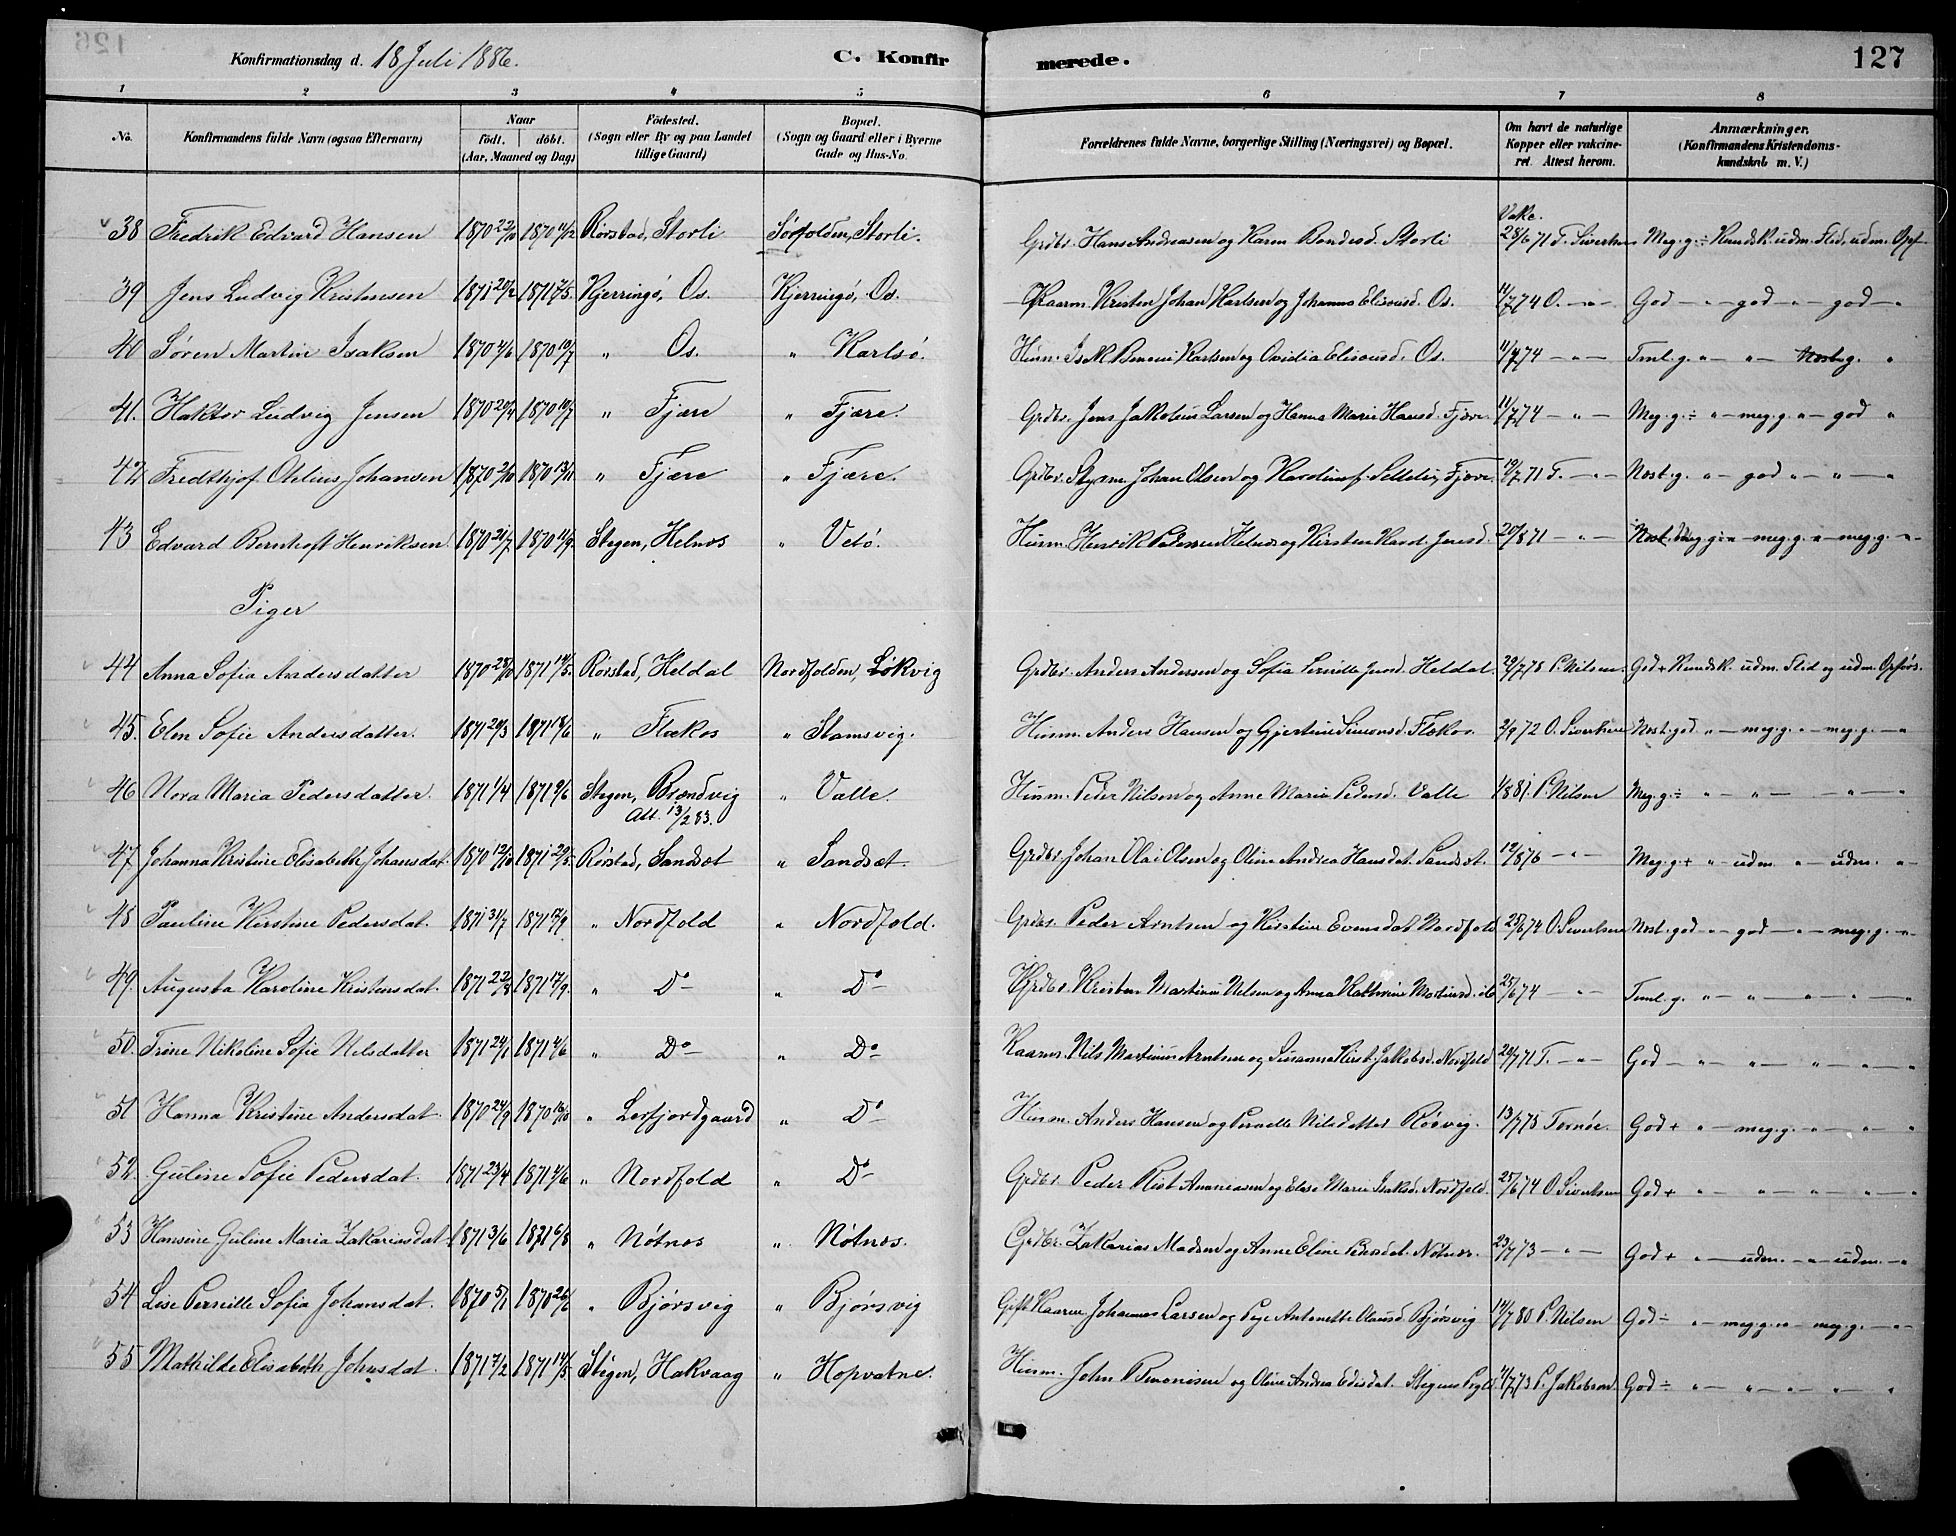 Konfirmationsdag d. 18 Juli 1886. C. Konfirmerede. 127
1 2 3 4 5 6 7 8
No. Konfirmandens fulde Navn (ogsaa Efternavn) Naar født. døbt. (Aar, Maaned og Dag) Fødested. (Sogn eller By og paa Landet tillige Gaard) Bopæl. (Sogn og Gaard eller i Byerne Gade og Hus-No. Forældrenes fulde Navne, borgerlige Stilling (Næringsvei) og Bopæl. Om havt de naturlige Kopper eller vakcineret. Attest herom. Anmærkninger. (Konfirmandens Kristendomskundskab m. V.)
38 Fredrik Edvard Hansen 1870 22/10 1870 4/12 Rørstad, Storli Sørfolden, Storli. Grdbr. Hans Andreasen og Karen Bendesd. Storli Vakc. 28/6 71 T. Sivertsen Meg. g. ÷ Kundsk. udm. Flid, udm. Opf.
39 Jens Ludvig Kristensen 1871 20/2 1871 7/5 Kjerringø, Os. Kjerringø, Os. Kaarm. Kristen Johan Karlsen og Johanna Eliseusd. Os. 11/7 74 O. — " — God — " — god — " — god — "
40 Søren Martin Isaksen 1870 4/6 1870 10/7 " Os. " Karlsø. Husm. Isak Benoni Karlsen og Ovidia Eliseusd. Os. 11/7 74 — " — Tml. g. " — " — Nost. g. "
41. Haktor Ludvig Jensen 1870 20/4 1870 10/7 " Fjære " Fjære. Grdbr. Jens Jakobius Larsen og Hanna Marie Hansd. Fjære 11/7 74 — " — Meg. g. ÷ " — meg. g. " — god "
42 Fredthjof Otelius Johansen 1870 2/10 1870 13/11 " Fjære " Fjære. Grdbr. Johan Olsen og Fjære. 19/7 71 T. — " — Nost. g. " — god " — " — "
43 Edvard Bernhoft Henriksen 1870 21/7 1870 11/9 Stegen, Helnes " Vetø. Husm. Henrik Pedersen Helnes og Kirsten Jensd. 20/8 71 — " — meg. g. " — meg. g. " —
Piger
44 Anna Sofia Andersdatter 1870 28/10 1871 14/5 Rørstad, Heldal Nordfolden, Løkvig Grdbr. Anders Andersen og Sofia Pernille Jensd. Heldal 29/7 78 P. Nilsen God + Kundsk. udm. Flid og udm. Opførs.
45. Elen Sofie Andersdatter. 1871 20/3 1871 18/6 " Flækos " Stamsvig. Husm. Anders Hansen og Gjertine Simonsd. Flækos 2/9 72 O. Sivertsen Nost. god " — meg. g. " — meg. g. — "
46 Nora Maria Pedersdatter. 1871 1/4 1871 9/6 Stegen, Brændvig " Valle. Husm. Peder Nilsen og Anne Maria Pedersd. Valle 1/8 81. P. Nilsen Meg. g. ÷ " — " — — " — "
Att. 13/2 83.
47. Johanna Kristine Elisabeth Johansdat. 1870 12/10 1871 29/5 Rørstad, Sandsæt " Sandsæt. Grdbr. Johan Olai Olsen og Oline Andrea Hansdat. Sandsæt. 19/8 76 — " — Meg. g. + " — udm. " — udm. " —
48 Pauline Kirstine Pedersdat. 1871 31/7 1871 17/9 " Nordfold " Nordfold. Grdbr. Peder Arntsen og Kirstine Evensdat. Nordfold 25/6 74 O. Sivertsen Nost. god " — god — " — meg. g. — "
49. Augusta Karoline Kristensdat. 1871 22/8 1871 17/9. " Do — " Do — Grdbr. Kristen Martinus Nilsen og Anna Kathrine Martinusd. ib 25/6 74 — " — Tml. g. " — " — " — " — "
50. Trine Nikoline Sofie Nilsdatter 1871 24/1 1871 4/6 " Do — " Do — Kaarm. Nils Martinus Arntsen og Susanna Kirst. Jakobsd. Nordfold 20/7 71 T. — " — God — " — " — " — " — "
51 Hanna Kristine Andersdat. 1870 24/9 1870 16/10 " Leifjordgaard " Do — Husm. Anders Hansen og Pernelle Nilsdatter Røsvig. 13/7 75 Tornøe. God + " — meg. g. " — " — "
52. Guline Sofie Pedersdat. 1871 23/4 1871 4/6 " Nordfold " Do — Grdbr. Peder Rist Ananiasen og Else Marie Isaksd. Nordfold. 25/6 74 O. Sivertsen God + " — " — " — " — "
53 Hansine Guline Maria Zakariasdat. 1871 3/6 1871 6/8 " Nøtnes " Nøtnes. Grdbr. Zakarias Madsen og Anne Eline Pedersdat. Nøtnes. 23/7 73 — " — God + " — udm. — " — udm. — "
54 Lise Pernille Sofia Johansdat. 1870 5/1 1870 26/6 " Bjørsvig " Bjørsvig Gift Kaarm. Johannes Larsen og Antonette Olausd. Bjørsvig 14/7 80 P. Nilsen God ÷ " — meg. g. " — meg. g. — " —
55 Mathilde Elisabeth Johnsdat. 1871 7/2 1871 14/5 Stegen, Hakvaag " Hopvatne. Husm. John Benonisen og Oline Andrea Edisdat. Stegens Pgld. 4/7 73 P. Jakobsen God ÷ " — " — " — " — "